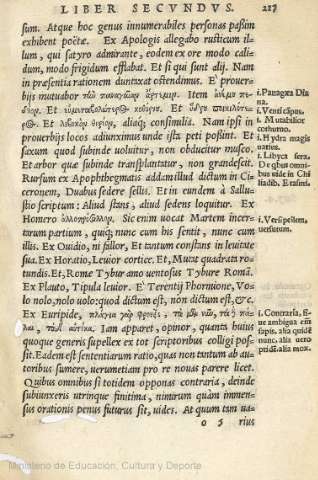 LIBER SECVNDVS. 217
sum. Atque hoc genus innumerabiles personas paßim
exhibent poëtæ. Ex Apologis allegabo rusticum il-
lum, qui satyro admirante, eodem ex ore modo cali-
dum, modo frigidum efflabat. Et si qui sunt alij. Nam
in præsentia rationem duntaxat ostendimus. E prouer-
bijs mutuabor
i. Panagæa Dia
na.
i. Venti capus.
i. Mutabilior
cothurno.
Et λιβυκὸν θηρίον, aliaq; consimilia. Nam ipsi in
prouerbijs locos adiunximus unde ista peti poßint. Et
i. Hydra magis
uaria.
saxum quod subinde uoluitur, non obducitur musco.
i. Libyca fera.
Et arbor quæ subinde transplantatur, non grandescit.
De qbus omni-
bus uide in Chi
liadib. Erasmi.
Rursum ex Apophthegmatis addam illud dictum in Ci-
ceronem, Duabus sedere sellis. Et in eundem à Sallu-
stio scriptum: Aliud stans, aliud sedens loquitur. Ex
Homero ἀλλοπρόσαλλον. Sic enim uocat Martem incer-
i. Versipellem,
uersutum.
tarum partium, quiq; nunc cum his sentit, nunc cum
illis. Ex Ouidio, ni fallor, Et tantum constans in leuitate
sua. Ex Horatio, Leuior cortice. Et, Mutat quadrata ro-
tundis. Et, Romæ Tybur amo uentosus Tybure Romã.
Ex Plauto, Tipula leuior. E Terentij Phormione, Vo-
lo nolo, nolo uolo: quod dictum est, non dictum est, &c.
Ex Euripide,
i. Contraria, &
nunc. alia uero
pridē. alia mox.
Ian apparet, opinor, quanta huius
quoque generis supellex ex tot scriptoribus colligi pos-
sit. Eadem est sententiarum ratio, quas non tantum ab au-
toribus sumere, uerumetiam pro re nouas parere licet.
Quibus omnibus si totidem opponas contraria, deinde
subiunxeris utrinque finitima, nimirum quàm immen-
sus orationis penus futurus sit, uides. At quum tam ua-
o 5 rius
Ministerio de Educación, Cultura y Deporte